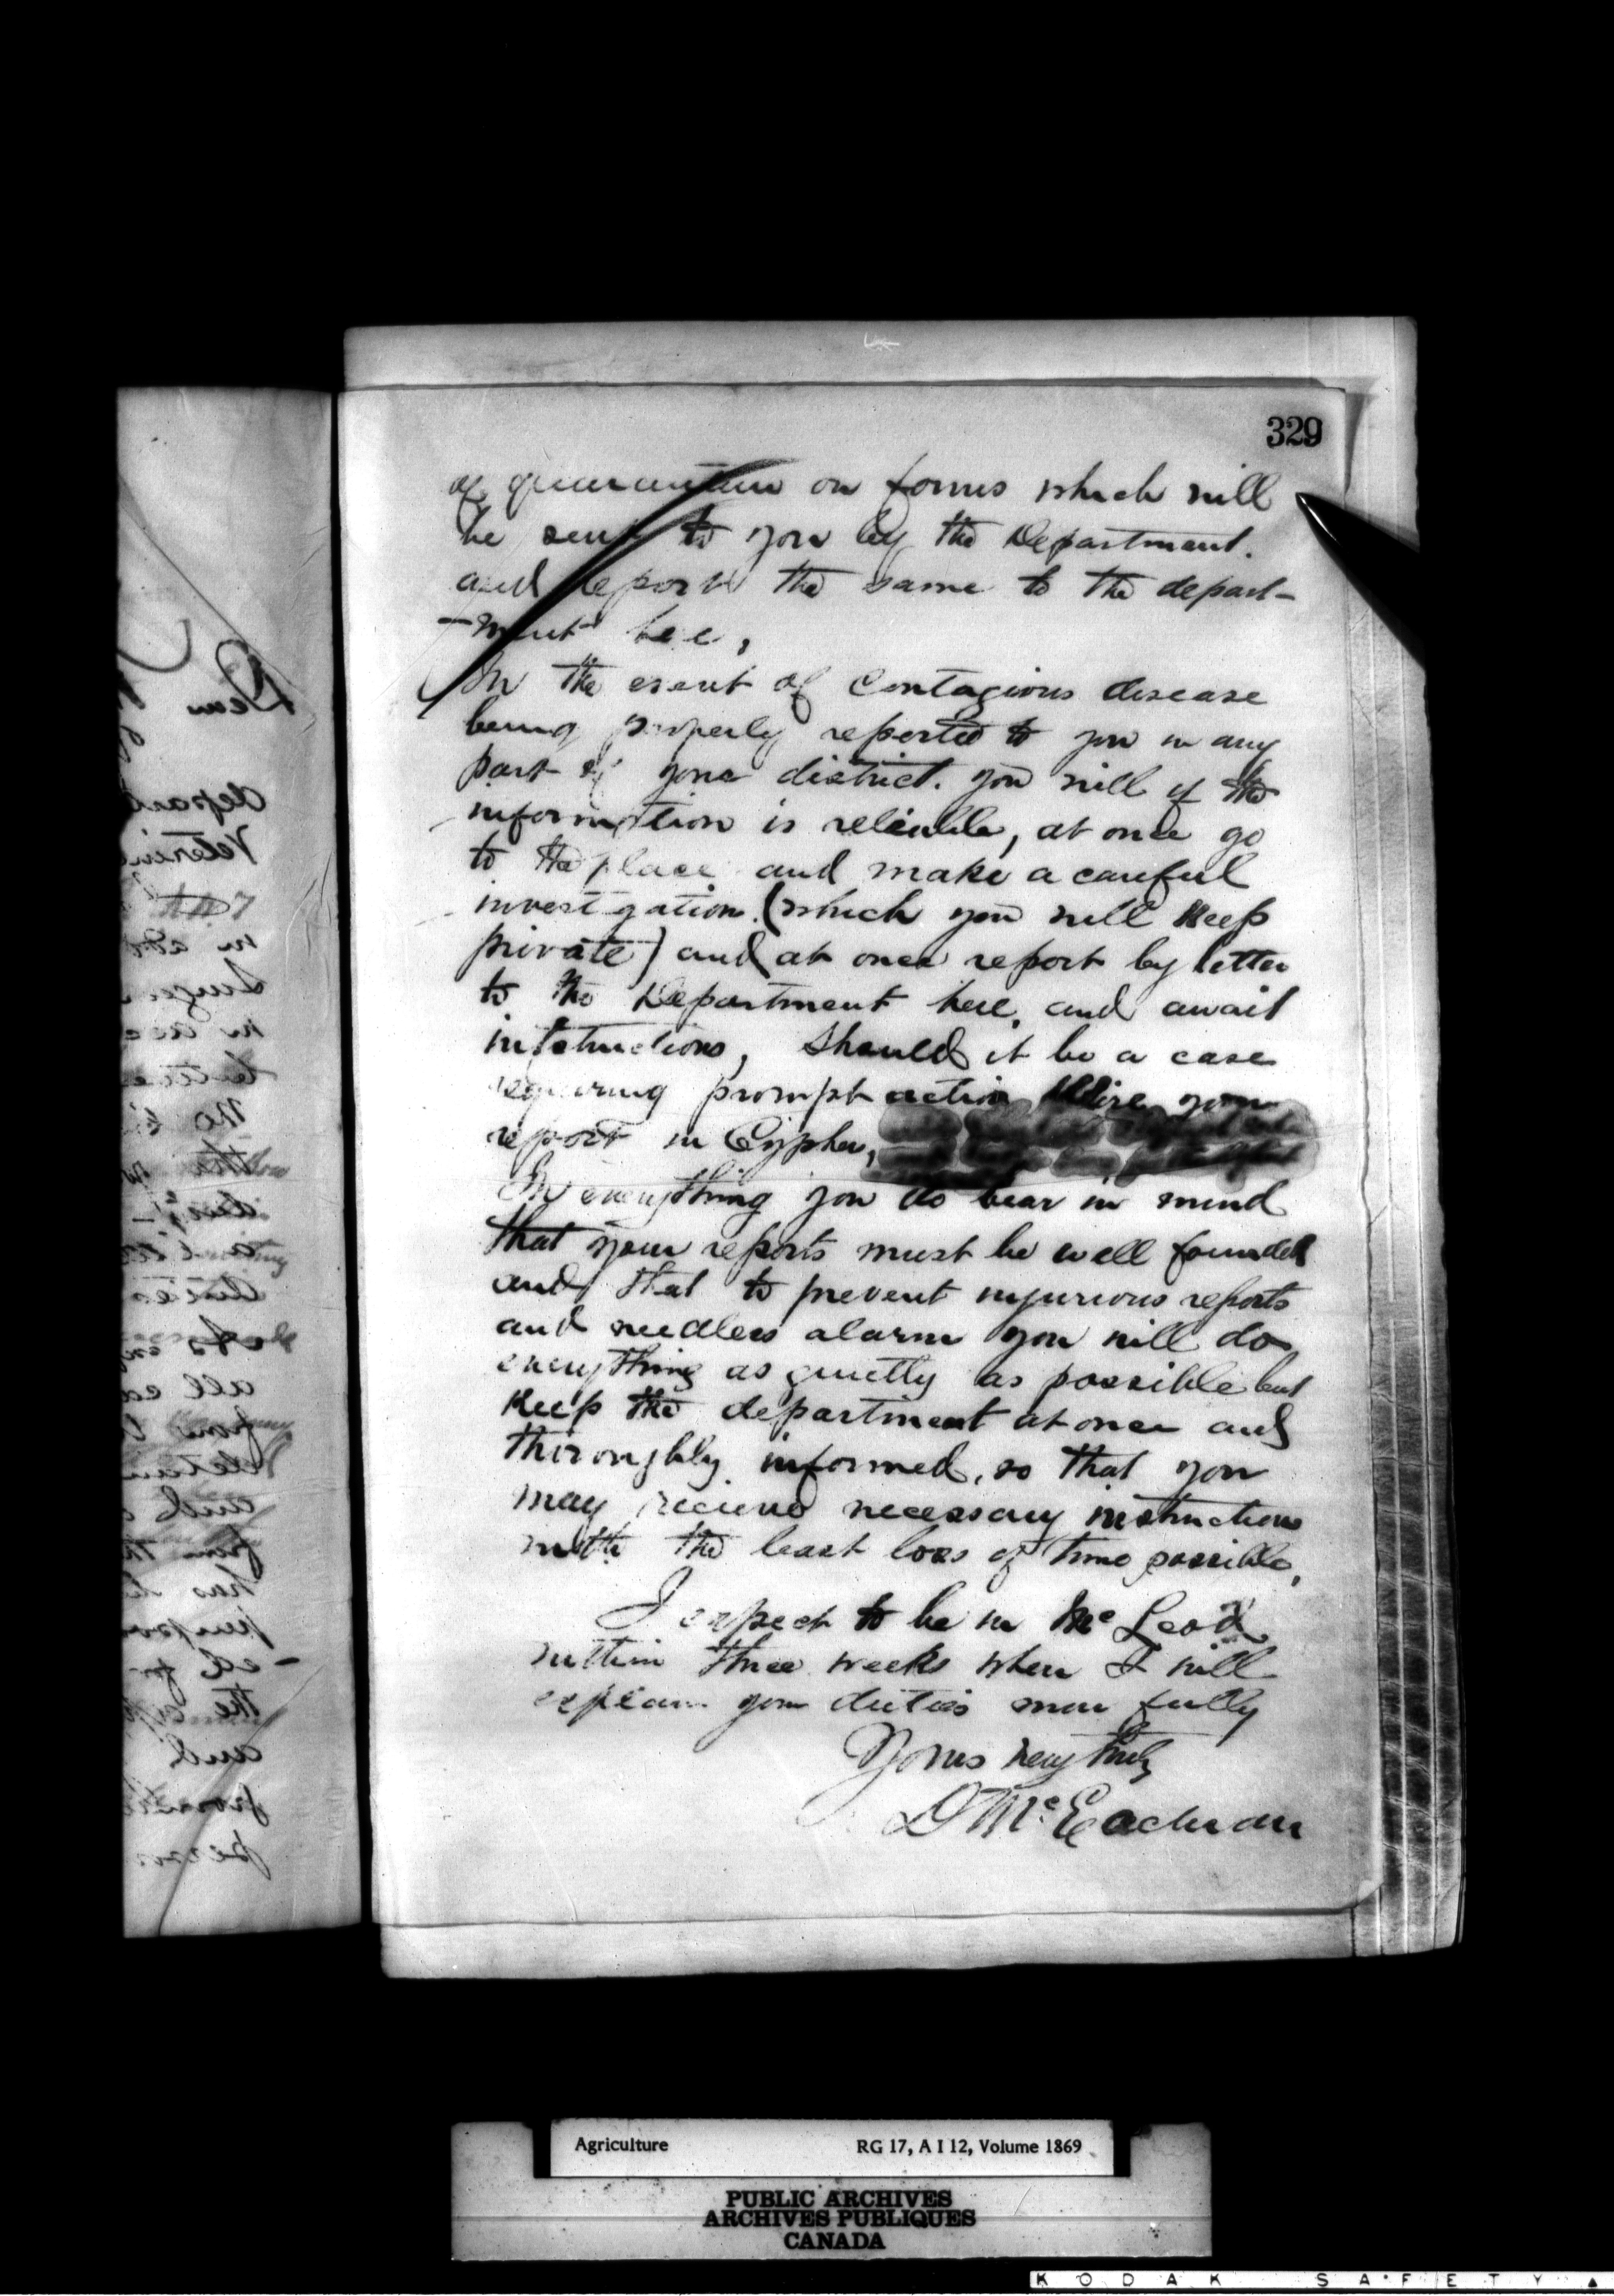 329
of quarantine on forms which will
be sent to you by the Department.
and report the same to the depart-
-ment here,
In the event of contagious disease
being properly reported to you in any
part of your district. you will if the
information is reliable, at once go
to the place and make a careful
investigation. (which you will keep
private) and at once report by letter
to the Department here, and await
instructions, Should it be a case
requiring prompt action Wire your
report in Cypher,
In everything you do bear in mind
that your reports must be well founded
and that to prevent injurious reports
and needless alarm you will do
everything as quietly as possible but
keep the department at once and
thoroughly informed, so that you
may recieve necessary instructions
with the least loss of time possible,
I expect to be in McLeod
within three weeks when I will
explain your duties more fully
Yours very truly
D McEachran
Dear
depart
Veterin
in
all
and
has
the
and
Agriculture RG 17, A I 12, Volume 1869
PUBLIC ARCHIVES
ARCHIVES PUBLIQUES
CANADA
KODAK SAFETY